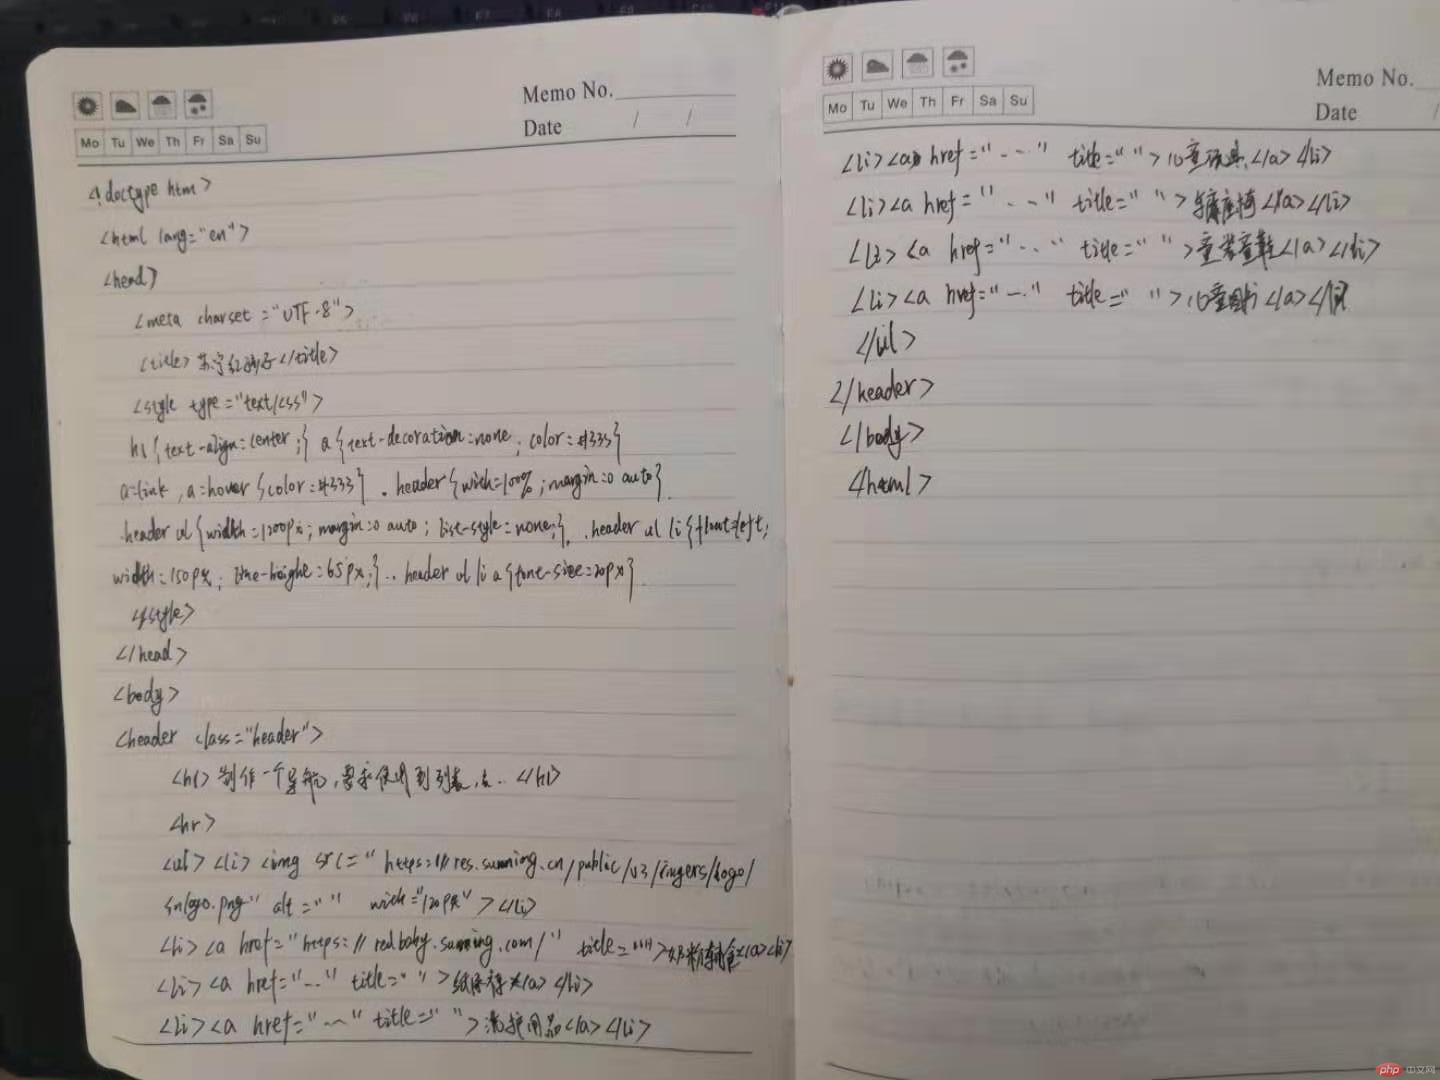 Memo No.
Mo Tu We Th Fr Sa Su
Date / /
<!doctype htm>
<html lang="en">
<head>
<meta charset="UTF-8">
<title>苏宁红孩子</title>
<style type="text/css">
h1{text-align=center;} a{text-decoration=none; color:#333}
a=link, a=hover{color:#333} . header{with=100%; margin:0 auto}
.header ul{width=1200px; margin:0 auto; list-style=none;}. .header ul li{float=left;
width=150px; line-heighe=65px;}.. header ul li a{font-size=20px}
</style>
</head>
<body>
<header class="header">
<h1>制作一个导航,要求使用到列表,a..</h1>
<hr>
<ul><li><img src="https://res.suning.cn/public/v3/images/logo/
snlogo.png" alt="" with="120px"></li>
<li><a href="https://redbaby.suning.com/" title="">奶粉辅食</a><li>
<li><a href="..." title=" "></a></li>
<li><a href="..." title=" ">洗护用品</a></li>
Memo No.
Mo Tu We Th Fr Sa Su
Date /
<li><a href="..." title=" ">儿童玩具</a></li>
<li><a href="..." title=" ">座椅</a></li>
<li><a href="..." title=" ">童装童鞋</a></li>
<li><a href="..." title=" ">儿童图书</a></li>
</ul>
</header>
</body>
</html>
php 中文网